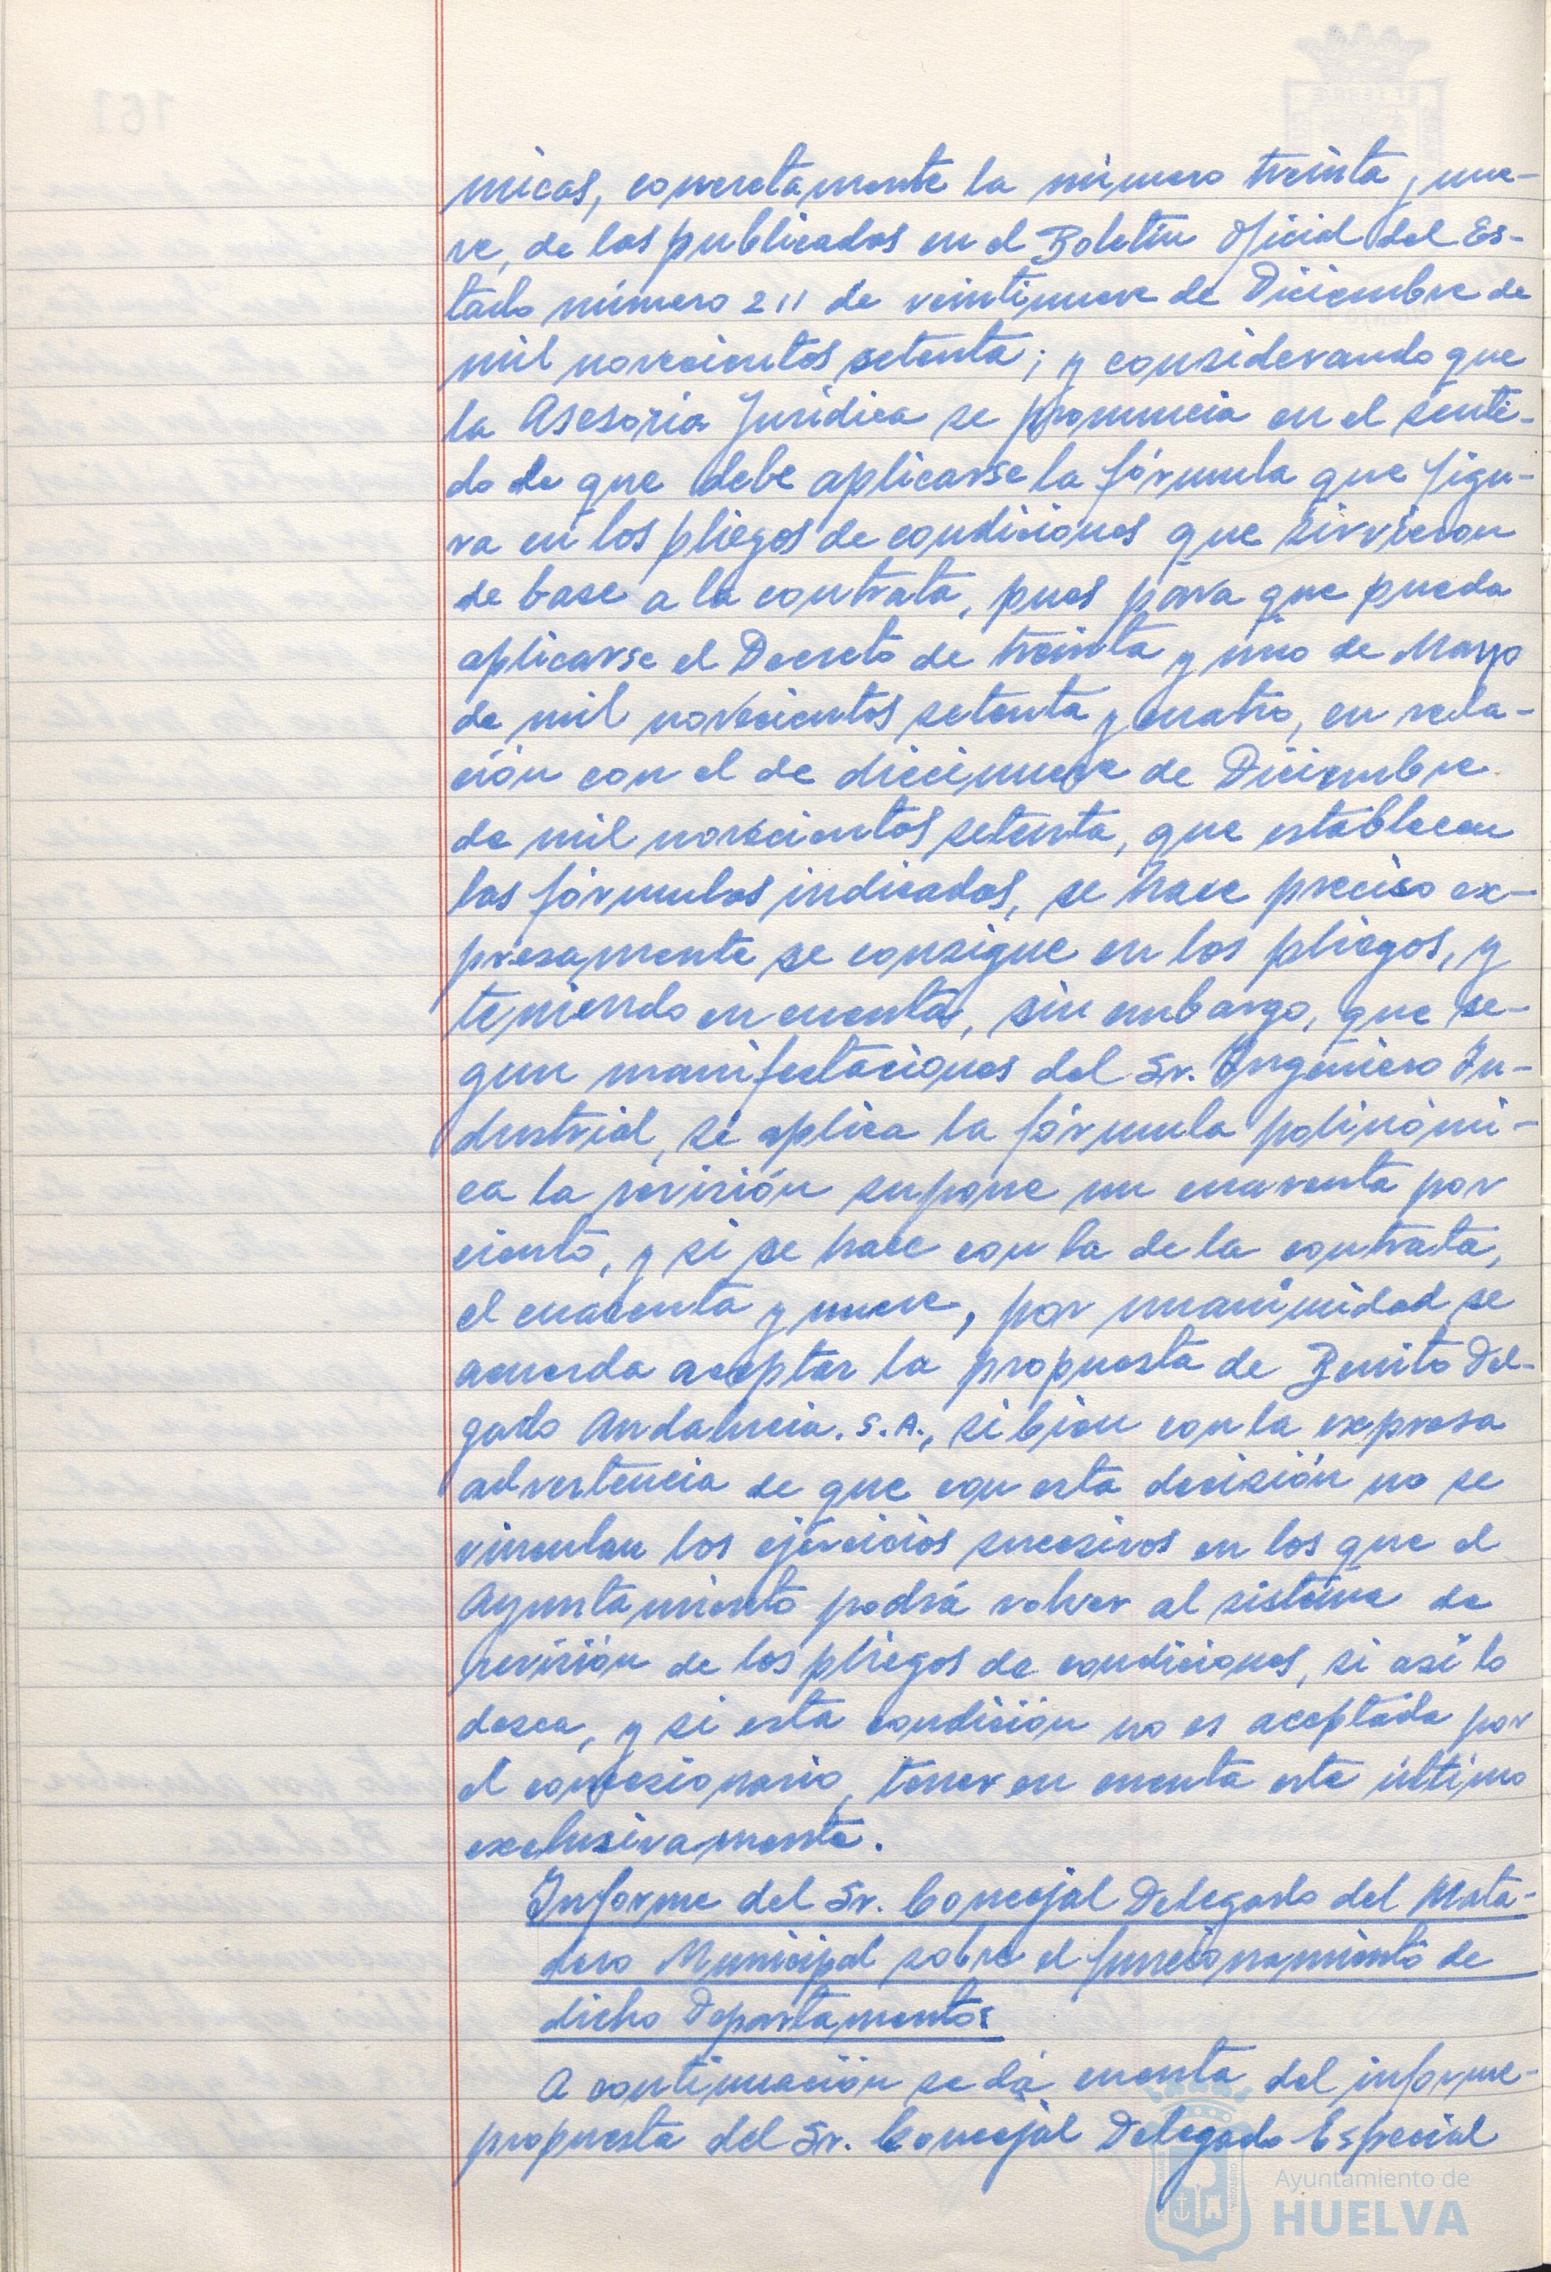 micas, concretamente la número treinta y nue-
ve, de las publicadas en el Boletín Oficial del Es-
tado número 211 de veintinueve de Diciembre de
mil novecientos setenta; y considerando que
la Asesoría Jurídica se pronuncia en el senti-
do de que debe aplicarse la fórmula que figu-
ra en los pliegos de condiciones que sirvieron
de base a la contrata, pues para que pueda
aplicarse el Decreto de treinta y uno de Marzo
de mil novecientos setenta y cuatro, en rela-
ción con el de diecinueve de Diciembre
de mil novecientos setenta, que establecen
las fórmulas indicadas, se hace preciso ex-
presamente se consigne en los pliegos, y
teniendo en cuenta, sin embargo, que se-
gun manifestaciones del Sr. Ingeniero In-
dustrial, si aplica la fórmula polinómi-
ca la revisión supone un cuarenta por
ciento, y si se hace con la de la contrata,
el cuarenta y nueve, por unanimidad se
acuerda aceptar la propuesta de Benito Del-
gado Andalucia. S.A., si bien con la expresa
advertencia de que con esta decisión no se
vinculan los ejercicios sucesivos en los que el
Ayuntamiento podrá volver al sistema de
revisión de los pliegos de condiciones, si así lo
desea, y si esta condición no es aceptada por
el concesionario, tener en cuenta este último
exclusivamente.
Informe del Sr. Concejal Delegado del Mata-
dero Municipal sobre el funcionamiento de
dicho Departamento:
A continuación se dá cuenta del informe-
propuesta del Sr. Concejal Delegado Especial
Ayuntamiento de
HUELVA